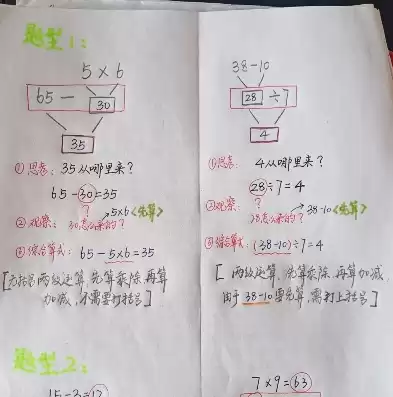 题型1:
5×6
65 — 30
35
①思考: 35从哪里来?
65-30=35
?
②观察: 30怎么来的? 5×6<先算>
③综合算式: 65-5×6=35
[无括号两级运算,先算乘除,再算
加减,不需要打括号]
38-10
28 ÷7
4
①思考: 4从哪里来?
28÷7=4
?
②观察: 28怎么来的? 38-10<先算>
③综合算式: (38-10)÷7=4
[两级运算,先算乘除,再算加减,
由于38-10要先算,需打上括号]
题型2:
15-3=12
7×9=63